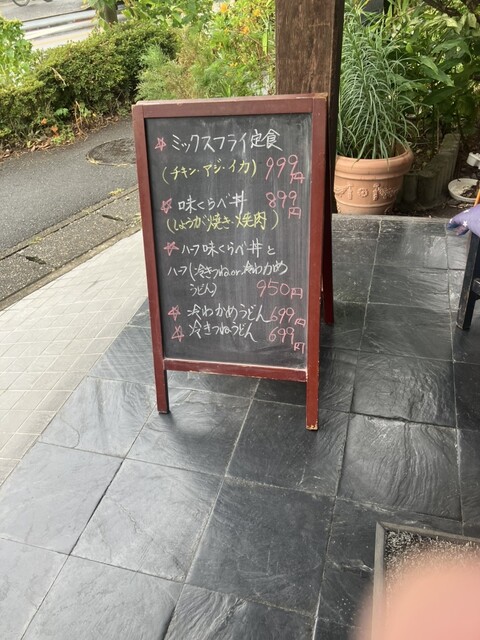 ☆ミックスフライ定食
(チキン・アジ・イカ) 999円
☆味くらべ丼 899円
(しょうが焼き・焼肉)
☆ハーフ味くらべ丼と
ハーフ(冷きつねor冷わかめ
うどん) 950円
☆冷わかめうどん 699円
☆冷きつねうどん 699円